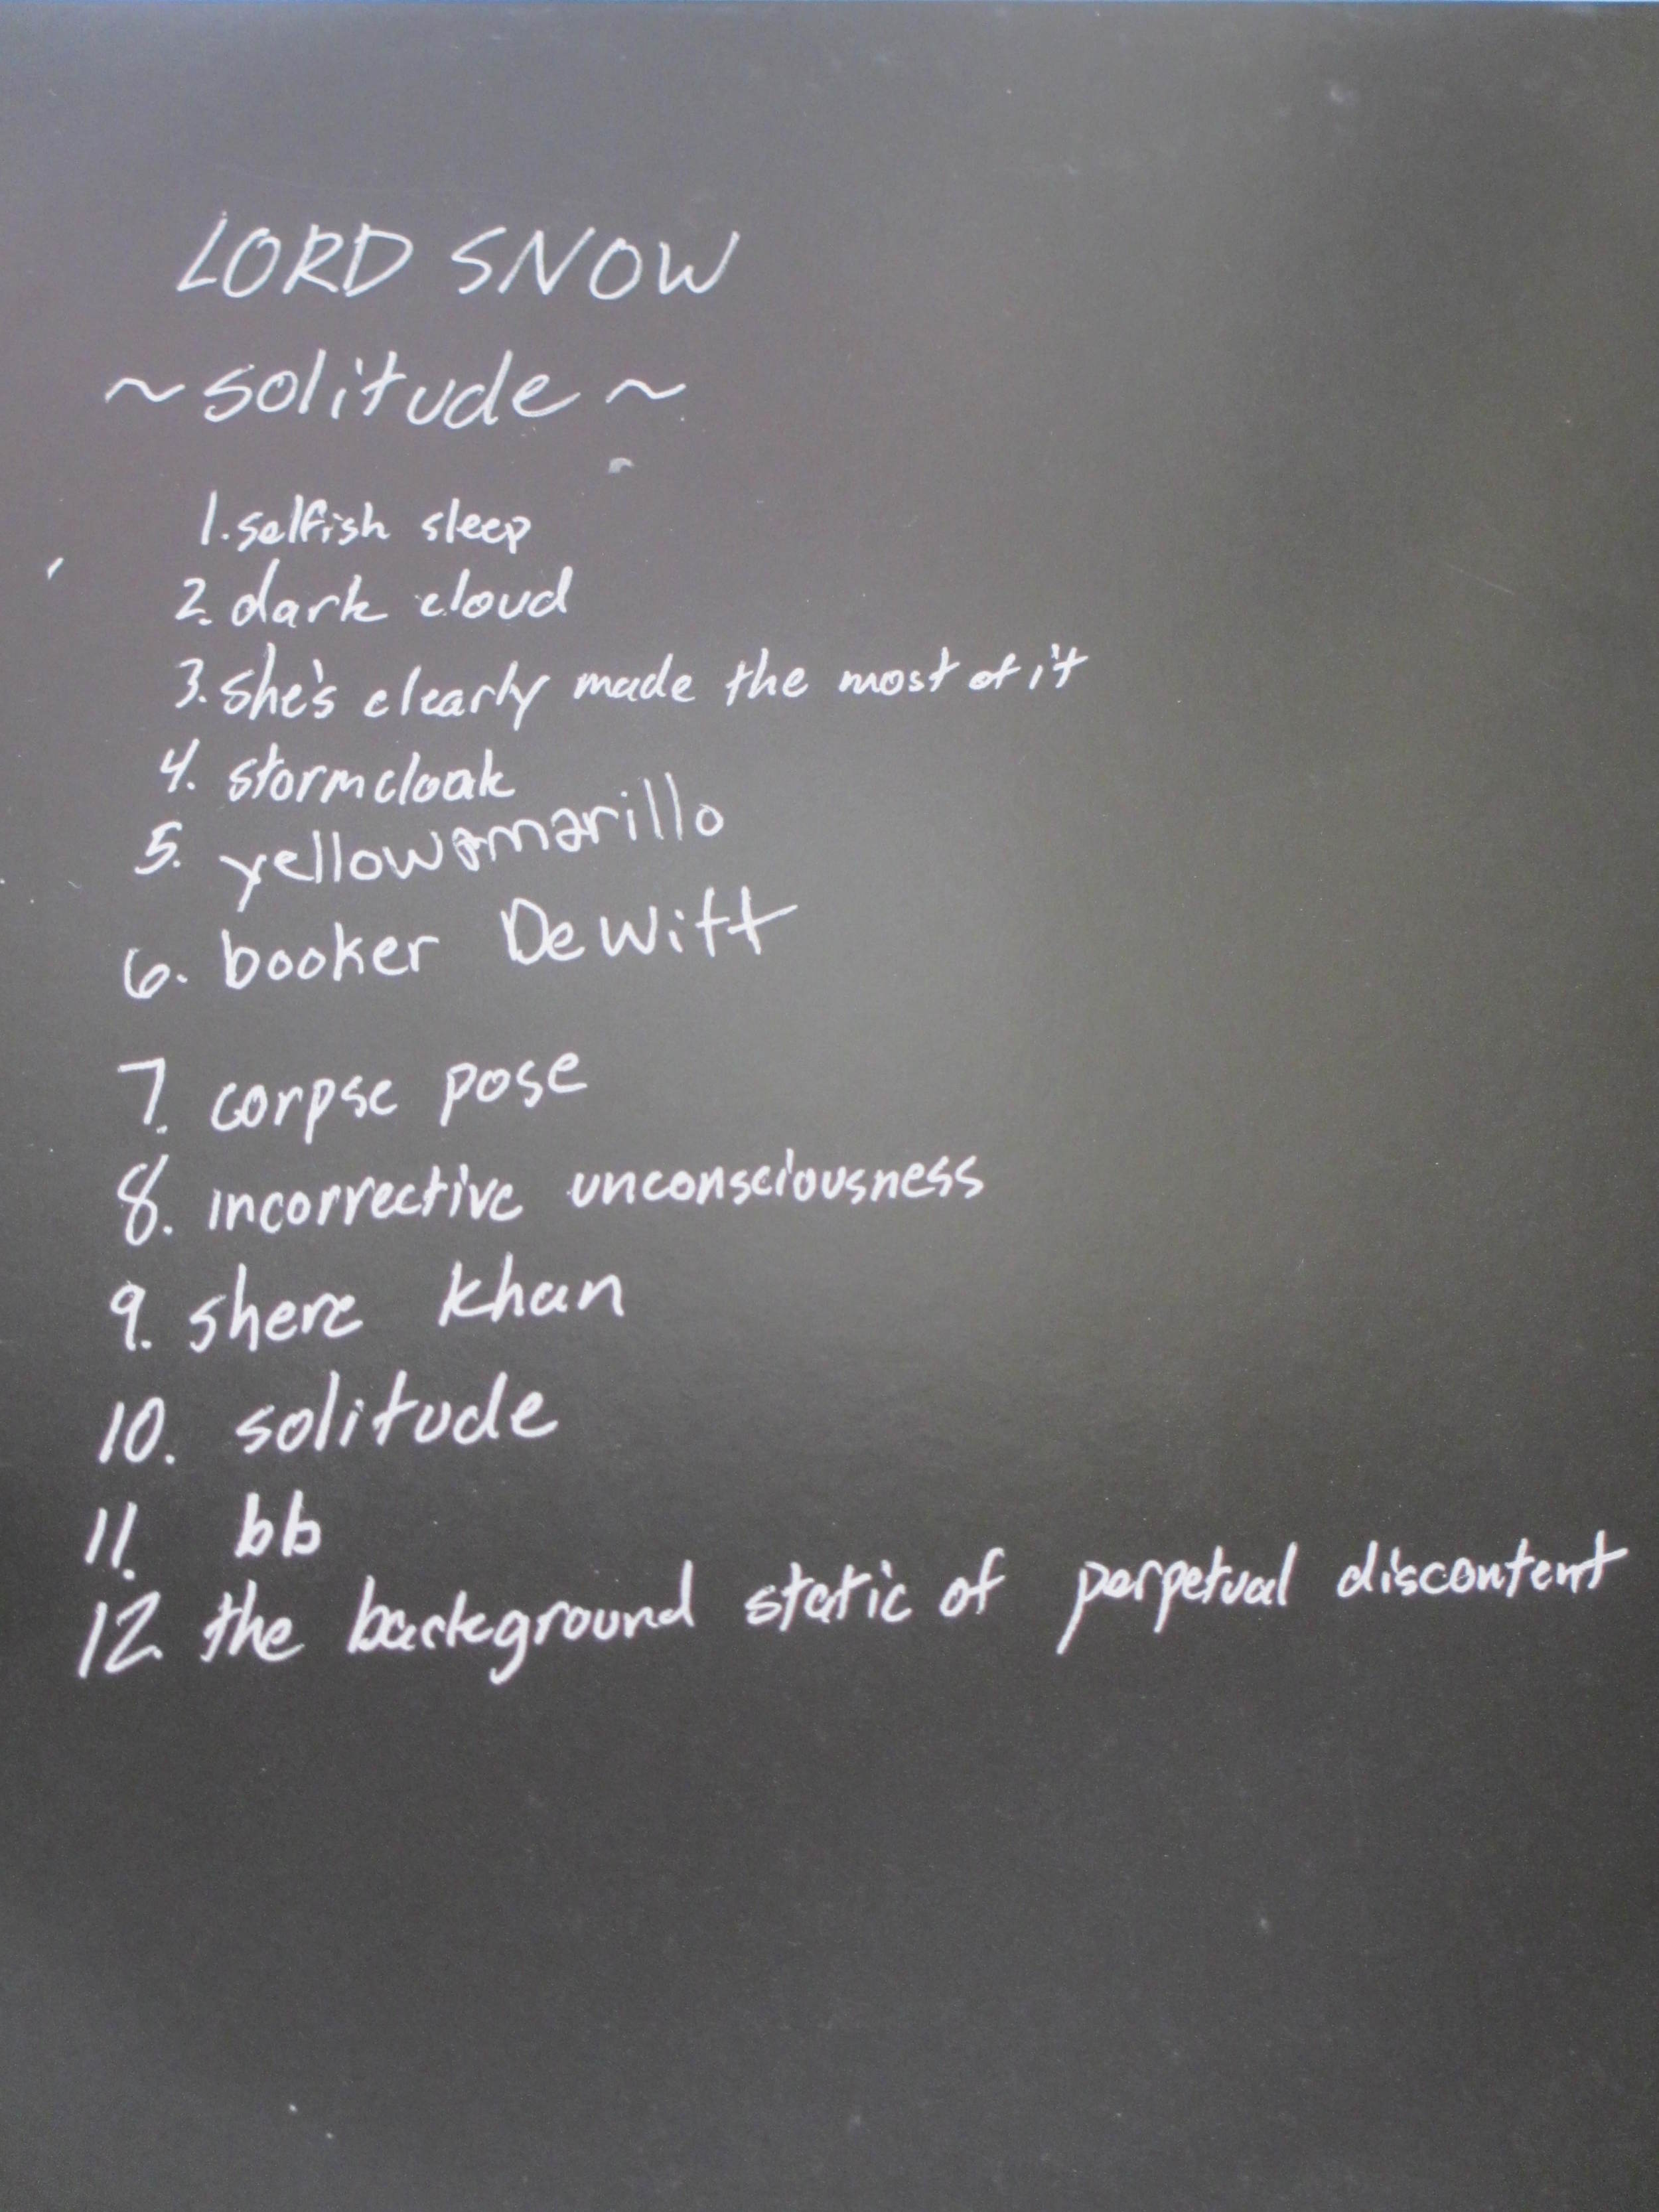 LORD SNOW
~solitude~
1. selfish sleep
2. dark cloud
3. she's clearly made the most of it
4. stormcloak
5. yellowamarillo
6. booker DeWitt
7. corpse pose
8. incorrective unconsciousness
9. shere khan
10. solitude
11. bb
12. the background static of perpetual discontent